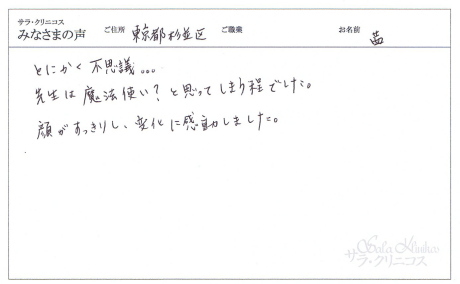 サラ・クリニコス
みなさまの声 ご住所 東京都杉並区 ご職業 お名前 茜
とにかく不思議...
先生は魔法使い?と思ってしまう程でした。
顔がすっきりし、変化に感動しました。
Sala Klinikos
サラ・クリニコス